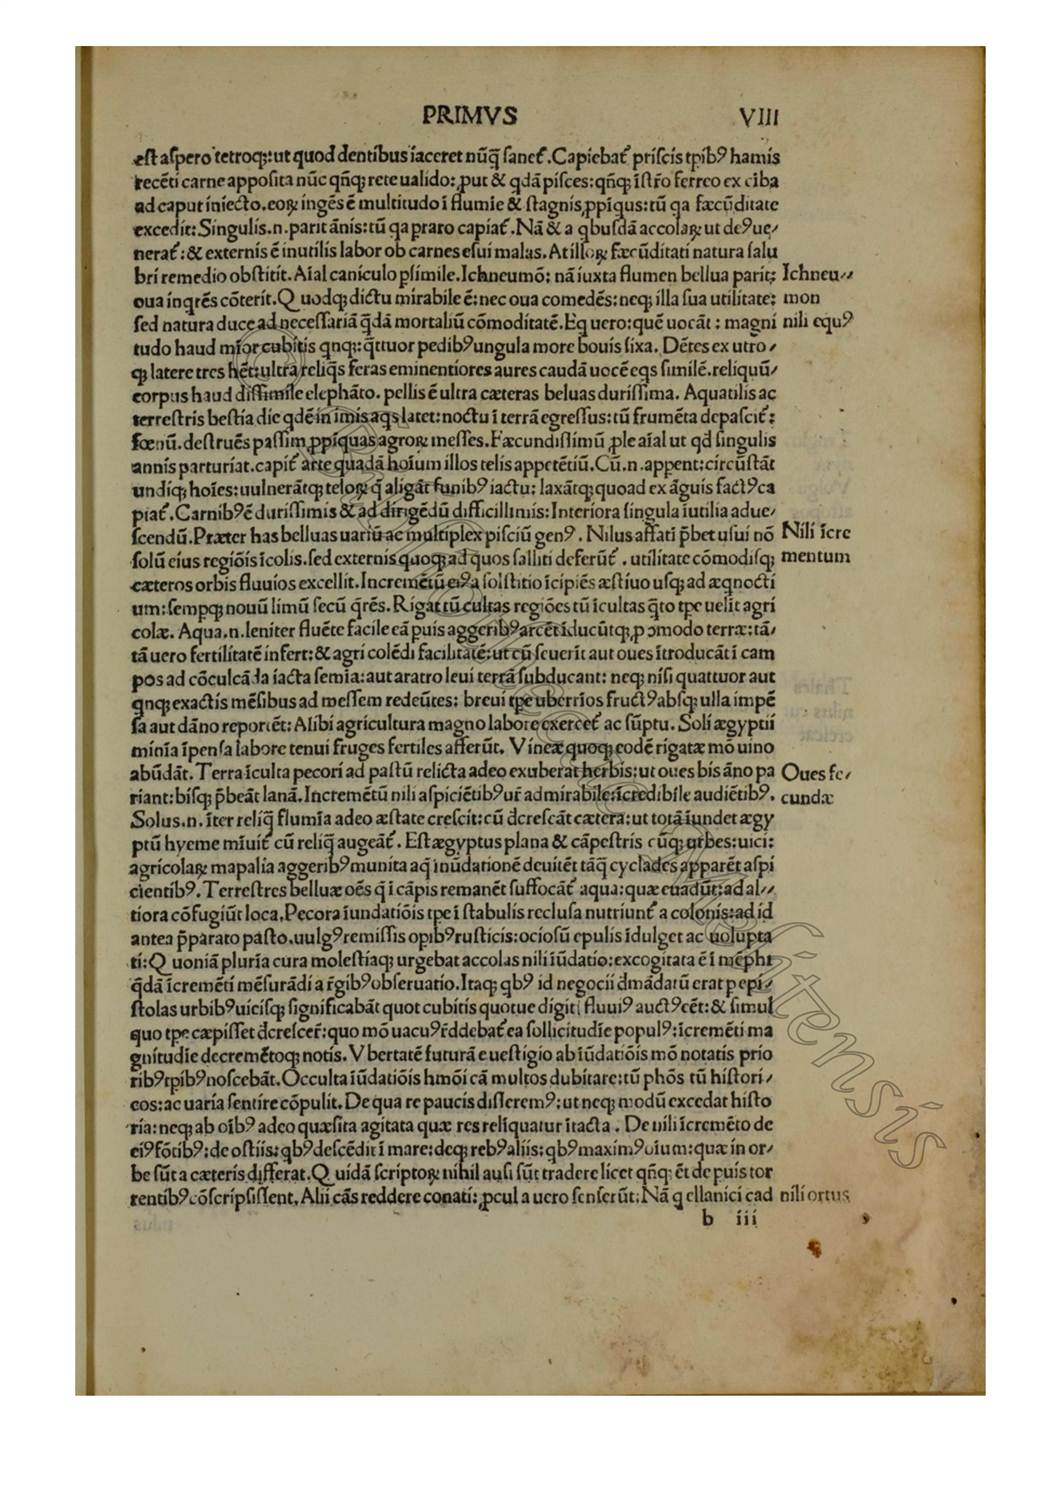 PRIMVS VIII
est aspero tetroq;: ut quod dentibus iaceret nūq̄ sanet᷑. Capiebat᷑ priscis tpib⁹ hamis
recēti carne apposita nūc qñq; rete ualido: ꝓut & qdā pisces: qñq; īstr̄o ferreo ex ciba
ad caput iniecto. eoꝝ ingēs ē multitudo ī flumie & stagnis ꝓpīqus: tū qa fæcūditate
excedit: Singulis .n. parit ānis: tū qa praro capiat᷑. Nā & a qbusdā accolaꝝ ut de⁹ ue/
nerat᷑: & externis ē inutilis labor ob carnes esui malas. At illoꝝ fæcūditati natura salu
bri remedio obstitit. Aīal caniculo psimile. Ichneumō: nā iuxta flumen bellua parit: Ichneu//
oua inqrēs cōterit. Quodq; dictu mirabile ē: nec oua comedēs: neq; illa sua utilitate: mon
sed natura duce ad necessariā q̄dā mortaliū cōmoditatē. Eq uero: quē uocāt: magni nili equ⁹
tudo haud mīor cubitis qnq;: q̄ttuor pedib⁹ ungula more bouis fixa. Dētes ex utro/
q; latere tres hēt: ultra reliq̄s feras eminentiores aures caudā uocē eqs similē. reliquū/
corpus haud dissimile elephāto. pellis ē ultra cæteras beluas durissima. Aquatilis ac
terrestris bestia die qdē in imis aqs latet: noctu ī terrā egressus: tū frumēta depascit᷑:
fœnū. destruēs passim ꝓpīquas agroꝝ messes. Fæcundissimū ꝓle aīal ut qd singulis
annis parturiat. capit᷑ arte quadā hoīum illos telis appetētiū. Cū .n. appent: circūstāt
undiq; hoīes: uulnerātq; teloꝝ q̄ aligāt funib⁹ iactu: laxātq; quoad ex āguis fact⁹ ca
piat᷑. Carnib⁹ ē durissimis & ad dirigēdū difficillimis: Interiora singula īutilia adue/
scendū. Præter has belluas uariū ac multiplex pisciū gen⁹. Nilus affati p̄bet usui nō Nili īcre
solū eius regiōis īcolis. sed externis quoq; ad quos salliti deferūt᷑. utilitate cōmodisq; mentum
cæteros orbis fluuios excellit. Incremētū ei⁹ a solstitio īcipiēs æstiuo usq; ad æqnocti
um: sempq; nouū limū secū q̄rēs. Rigat tū cultas regiōes tū īcultas q̄to tpe uelit agri
colæ. Aqua .n. leniter fluēte facile eā puis aggerib⁹ arcēt īducūtq; ꝓ cōmodo terræ: tā/
tā uero fertilitatē infert: & agri colēdi facilitatē: ut cū seuerit aut oues ītroducāt ī cam
pos ad cōculcāda iacta semīa: aut aratro leui terrā subducant: neq; nisi quattuor aut
qnq; exactis mēsibus ad messem redeūtes: breui tpe uberrios fruct⁹ absq; ulla impē
sa aut dāno reporēt: Alibi agricultura magno labore exercet᷑ ac sūptu. Soli ægyptii
mínīa īpensa labore tenui fruges fertiles afferūt. Vineæ quoq; eodē rigatæ mō uino
abūdāt. Terra īculta pecori ad pastū relicta adeo exuberat herbis: ut oues bis āno pa Oues fe/
riant: bisq; p̄beāt lanā. Incremētū nili aspiciētib⁹ ur̄ admirabile: īcredibile audiētib⁹. cundæ
Solus .n. īter reliq̄ flumīa adeo æstate crescit: cū dcrescāt cætera: ut totā īundet ægy
ptū hyeme mīuit᷑ cū reliq̄ augeāt᷑. Est ægyptus plana & cāpestris cūq; urbes: uici:
agricolaꝝ mapalia aggerib⁹ munita aq̄ inūdationē deuitēt tāq̄ cyclades apparēt aspi
cientib⁹. Terrestres belluæ oēs q̄ ī cāpis remanēt suffocāt᷑ aqua: quæ euadūt: ad al//
tiora cōfugiūt loca. Pecora īundatiōis tpe ī stabulis reclusa nutriunt᷑ a colonis: ad id
antea p̄parato pasto. uulg⁹ remissis opib⁹ rusticis: ociosū epulis īdulget ac uolupta
ti: Quoniā pluria cura molestiaq; urgebat accolas nili iūdatio: excogitata ē ī mēphi
q̄dā īcremēti mēsurādi a r̄gib⁹ obseruatio. Itaq; qb⁹ id negocii dmādatū erat p epi/
stolas urbib⁹ uicisq; significabāt quot cubitis quotue digiti fluui⁹ auct⁹ cēt: & simul
quo tpe cæpisset dcrescer̄: quo mō uacu⁹ r̄ddebat᷑ ea sollicitudīe popul⁹: īcremēti ma
gnitudīe decremētoq; notis. Vbertatē futurā e uestigio ab iūdatiōis mō notatis prio
rib⁹ tpib⁹ noscebāt. Occulta iūdatiōis hmōi cā multos dubitare: tū phōs tū histori/
cos: ac uaria sentire cōpulit. De qua re paucis disserem⁹: ut neq; modū excedat histo
ria: neq; ab oīb⁹ adeo quæsita agitata quæ res reliquatur ītacta. De nili īcremēto de
ei⁹ fōtib⁹: de ostiis: qb⁹ descēdit ī mare: deq; reb⁹ aliis: qb⁹ maxim⁹ oīum: quæ in or/
be sūt a cæteris differat. Quidā scriptoꝝ nihil ausi sūt tradere licet qñq; ēt de puis tor
rentib⁹ cōscripsissent. Alii cās reddere conati: ꝓcul a uero senserūt: Nā q ellanici cad nili ortus
b iii